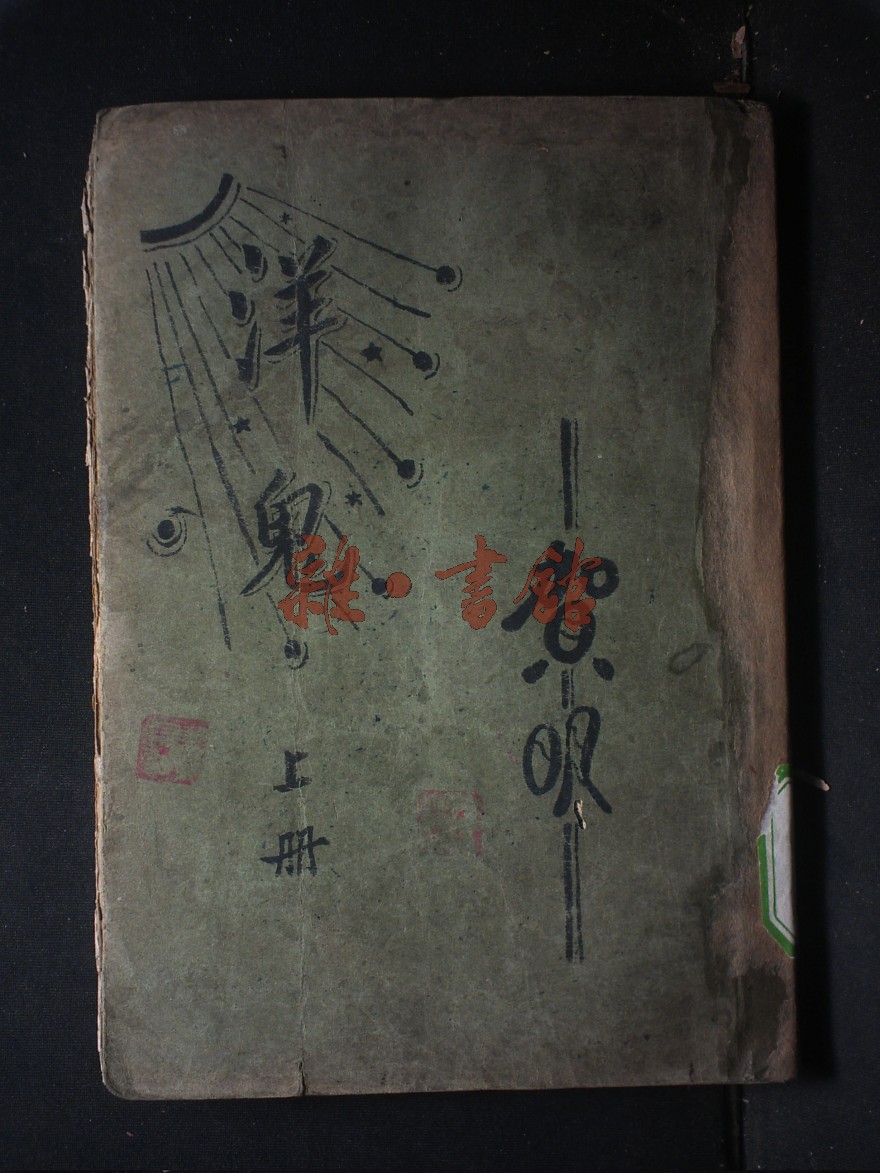 賀明
洋鬼
上册
雜·書館